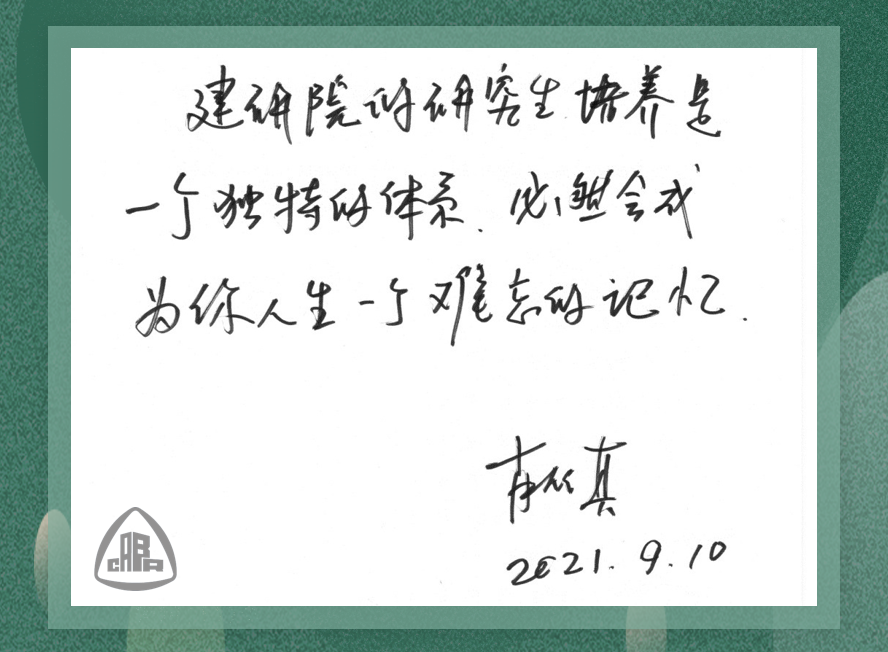 建研院的研究生培养是
一个独特的体系、必然会成
为你人生一个难忘的记忆.
肖从真
2021.9.10
CABR